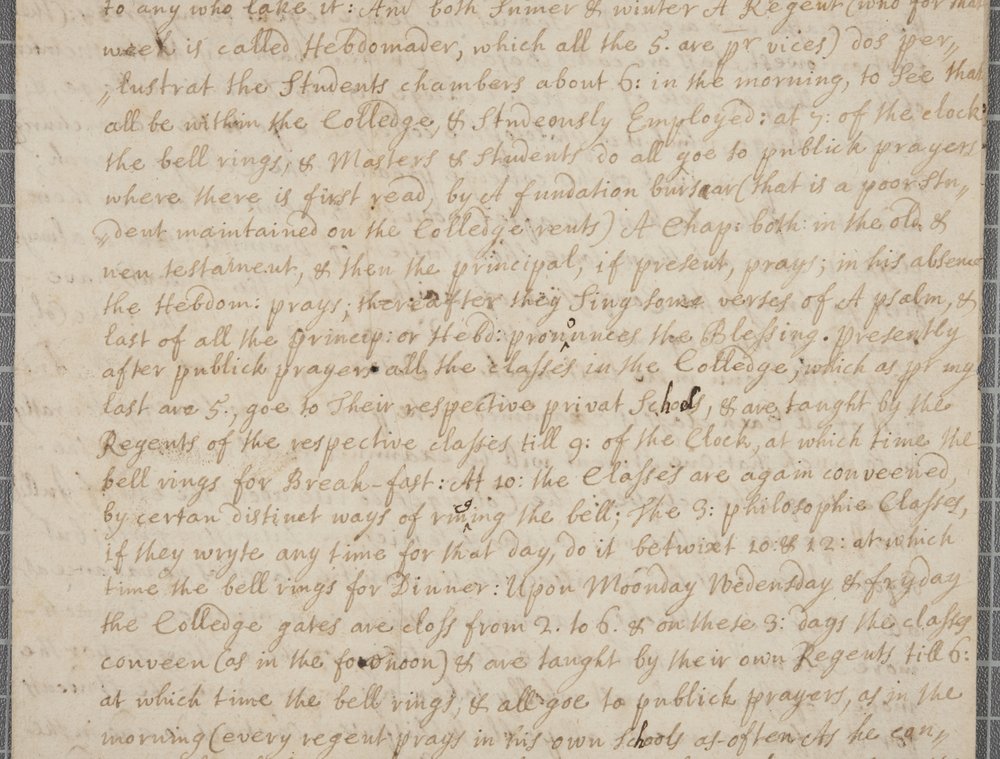 to any who take it: And both sumer & winter A Regent (who for that
week is called Hebdomader, which all the 5. are pr vices) dos per„
„lustrat the Students chambers about 6: in the morning, to see that
all be within the Colledge, & Studeously Employed: at 7: of the clock:
the bell rings, & Masters & Students do all goe to publick prayers
where there is first read, by A fundation bursear (that is a poor Stu„
„dent maintained on the Colledge rents) A Chap: both in the old &
new testament, & then the principal, if present, prays; in his absence
the Hebdom: prays; thereafter they Sing some verses of A psalm, &
last of all the princip: or Hebd: pronounces the Blessing. Presently
after publick prayers all the classes in the Colledge, which as pr my
last are 5., goe to Their respective privat Schools, & are taught by the
Regents of the respective classes till 9: of the Clock, at which time the
bell rings for Break-fast: At 10: the Classes are again conveened,
by certan distinct ways of ringing the bell; The 3: philosophie Classes,
if they wryte any time for that day, do it betwixt 10: & 12: at which
time the bell rings for Dinner: Upon Moonday Wedensday & fryday
the Colledge gates are closs from 2. to 6. & on these 3: days the classes
conveen (as in the forenoon) & are taught by their own Regents till 6:
at which time the bell rings, & all goe to publick prayers, as in the
morning (every regent prays in his own schools as often As he can„